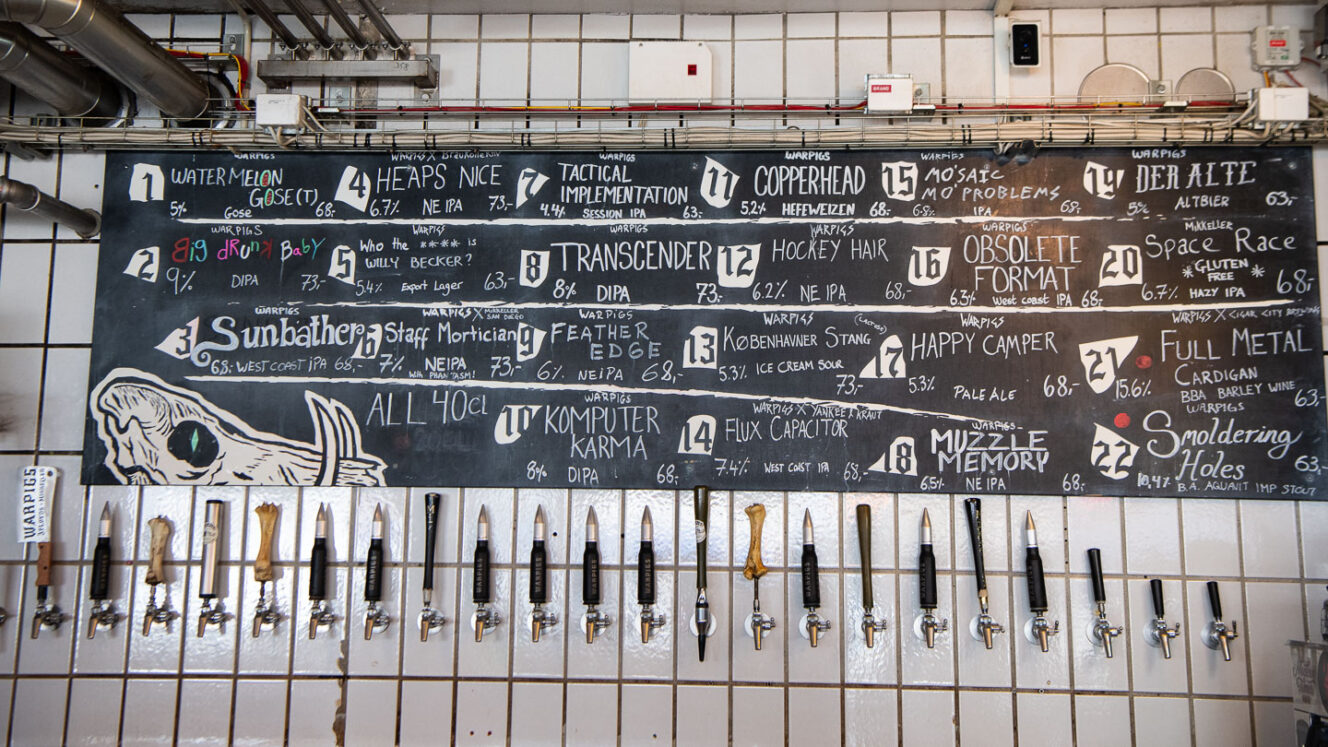 WARPIGS
1 WATERMELON
GOSE(T)
5% Gose 68,-
WARPIGS
2 Big dRunk BaBY
9% DIPA 73,-
WARPIGS
3 Sunbather
6.8,- WEST COAST IPA 68,-
WARPIGS X
4 HEAPS NICE
6.7% NE IPA 73,-
5 Who the **** is
WILLY BECKER?
5.4% Export Lager 63,-
WARPIGS X MIKKELLER SAN DIEGO
6 Staff Mortician
7% NEIPA 73,-
WITH PHANTASM!
WARPIGS
7 TACTICAL
IMPLEMENTATION
4.4% SESSION IPA 63,-
WARPIGS
8 TRANSCENDER
8% DIPA 73,-
WARPIGS
9 FEATHER
EDGE
6% NEIPA 68,-
ALL 40cl
WARPIGS
10 KOMPUTER
KARMA
8% DIPA 68,-
WARPIGS
11 COPPERHEAD
5.2% HEFEWEIZEN 68,-
WARPIGS
12 HOCKEY HAIR
6.2% NE IPA 68,-
WARPIGS (Lactose)
13 KØBENHAVNER STANG
5.3% ICE CREAM SOUR
73,-
WARPIGS X YANKEE & KRAUT
14 FLUX CAPACITOR
7.4% WEST COAST IPA 68,-
WARPIGS
15 MO'SAIC
MO'PROBLEMS
6.8% IPA 68,-
WARPIGS
16 OBSOLETE
FORMAT
6.3% West coast IPA 68,-
WARPIGS
17 HAPPY CAMPER
5.3% PALE ALE 68,-
WARPIGS
18 MUZZLE
MEMORY
6.5% NE IPA 68,-
WARPIGS
19 DER ALTE
5% ALTBIER 63,-
MIKKELLER
20 Space Race
*GLUTEN
FREE*
6.7% HAZY IPA 68,-
WARPIGS X CIGAR CITY BREWING
21 FULL METAL
CARDIGAN
15.6% BBA BARLEY WINE 63,-
WARPIGS
22 Smoldering
Holes
10,4% B.A. AQUAVIT IMP STOUT 63,-
WARPIGS